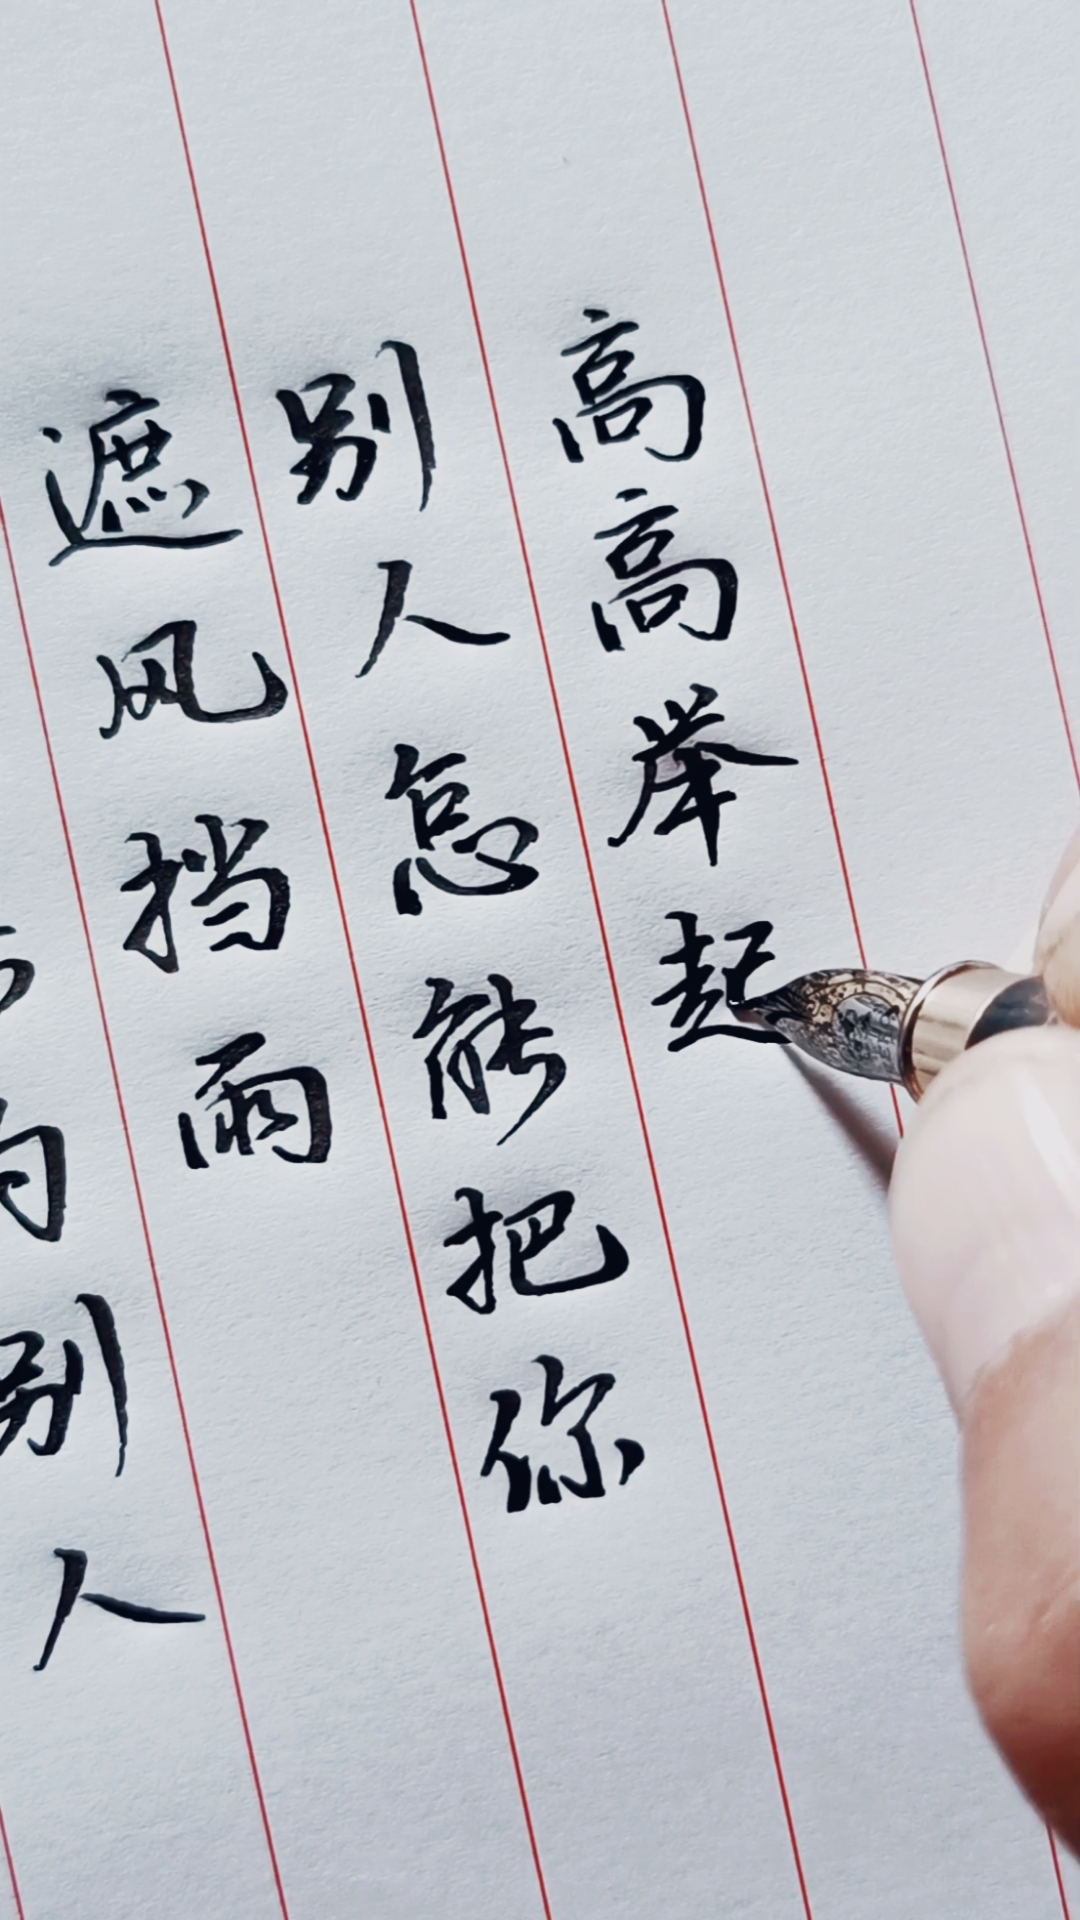 别人
遮风挡雨
别人怎能把你
高高举起